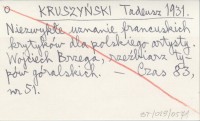 KRUSZYŃSKI Tadeusz 1931.
Niezwykłe uznanie francuskich
krytyków dla polskiego artysty.
Wojciech Brzega, rzeźbiarz ty-
pów góralskich. — Czas 83,
nr 51.